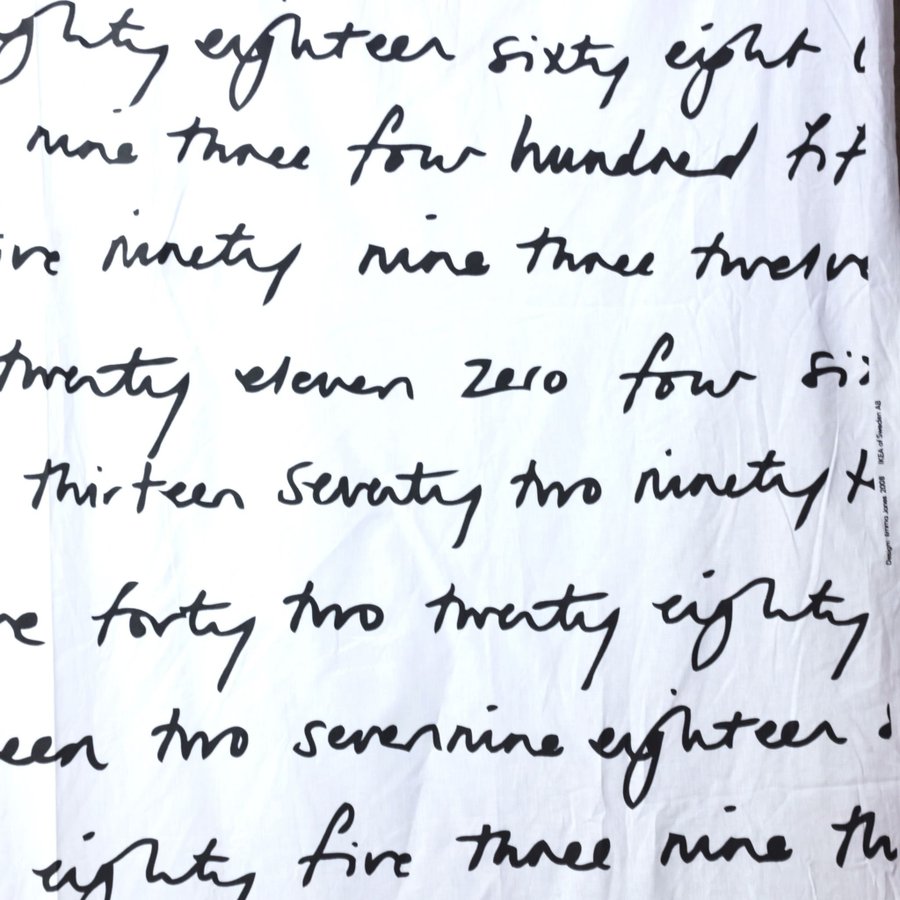 eighteen sixty eight
nine three four hundred
ninety nine three twelve
twenty eleven zero four
thirteen seventy two ninety
forty two twenty eighty
two seven nine eighteen
eighty five three nine
Design: Emma Jones 2008 IKEA of Sweden AB